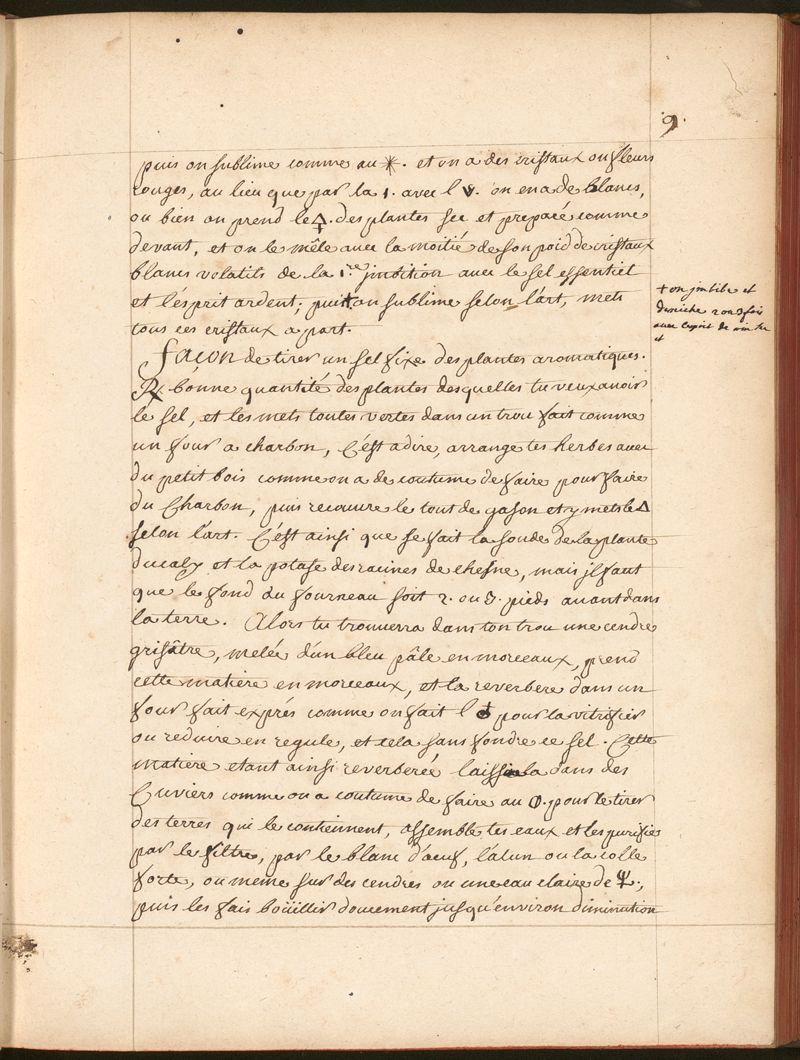 9
puis on sublime comme au ✳. et on a des cristaux ou fleurs
rouges, au lieu que par la 1. avec l . on en a de blancs,
ou bien on prend le 🜍. des plantes sec et preparé comme
devant, et on le mêle avec la moitié de son poid de cristaux
blancs volatils de la 1.re jmbition avec le sel essentiel
et l'ésprit ardent; puis + on sublime selon l'art, mets
tous ces cristaux a part.
+ on jmbibe et
desseiche 2 ou 3 fois
avec l'esprit de
et
façon de tirer un sel fixe des plantes aromatiques.
℞ bonne quantité des plantes desquelles tu veux avoir
le sel, et les mets toutes vertes dans un trou fait comme
un four a charbon, C'est a dire, arrange tes herbes avec
du petit bois comme on a de coutume de faire pour faire
du Charbon, puis recouvre le tout de gason et y mets le 🜂
selon l'art. C'est ainsi que se fait la soude de la plante
du caly et la potase des racines de chesne, mais jl faut
que le fond du fourneau soit 2. ou 3. pieds avant dans
la terre. Alors tu trouverra dans ton trou une cendre
grisâtre, melée d'un bleu pâle en morceaux, prend
cette matiere en morceaux, et la reverbere dans un
four fait exprés comme on fait l ♁ pour la vitrifier
ou reduire en regule, et cela sans fondre ce sel. Cette
matiere etant ainsi reverberée laissiela dans des
Cuviers comme on a coutume de faire au 🜕. pour le tirer
des terres qui le contiennent, assemble tes eaux et les purifie
par le filtre, par le blanc d'œuf, l'alun ou la colle
forte, ou meme sur des cendres ou une eau claire de .,
puis les fais boüillir doucement jusqu'environ diminution